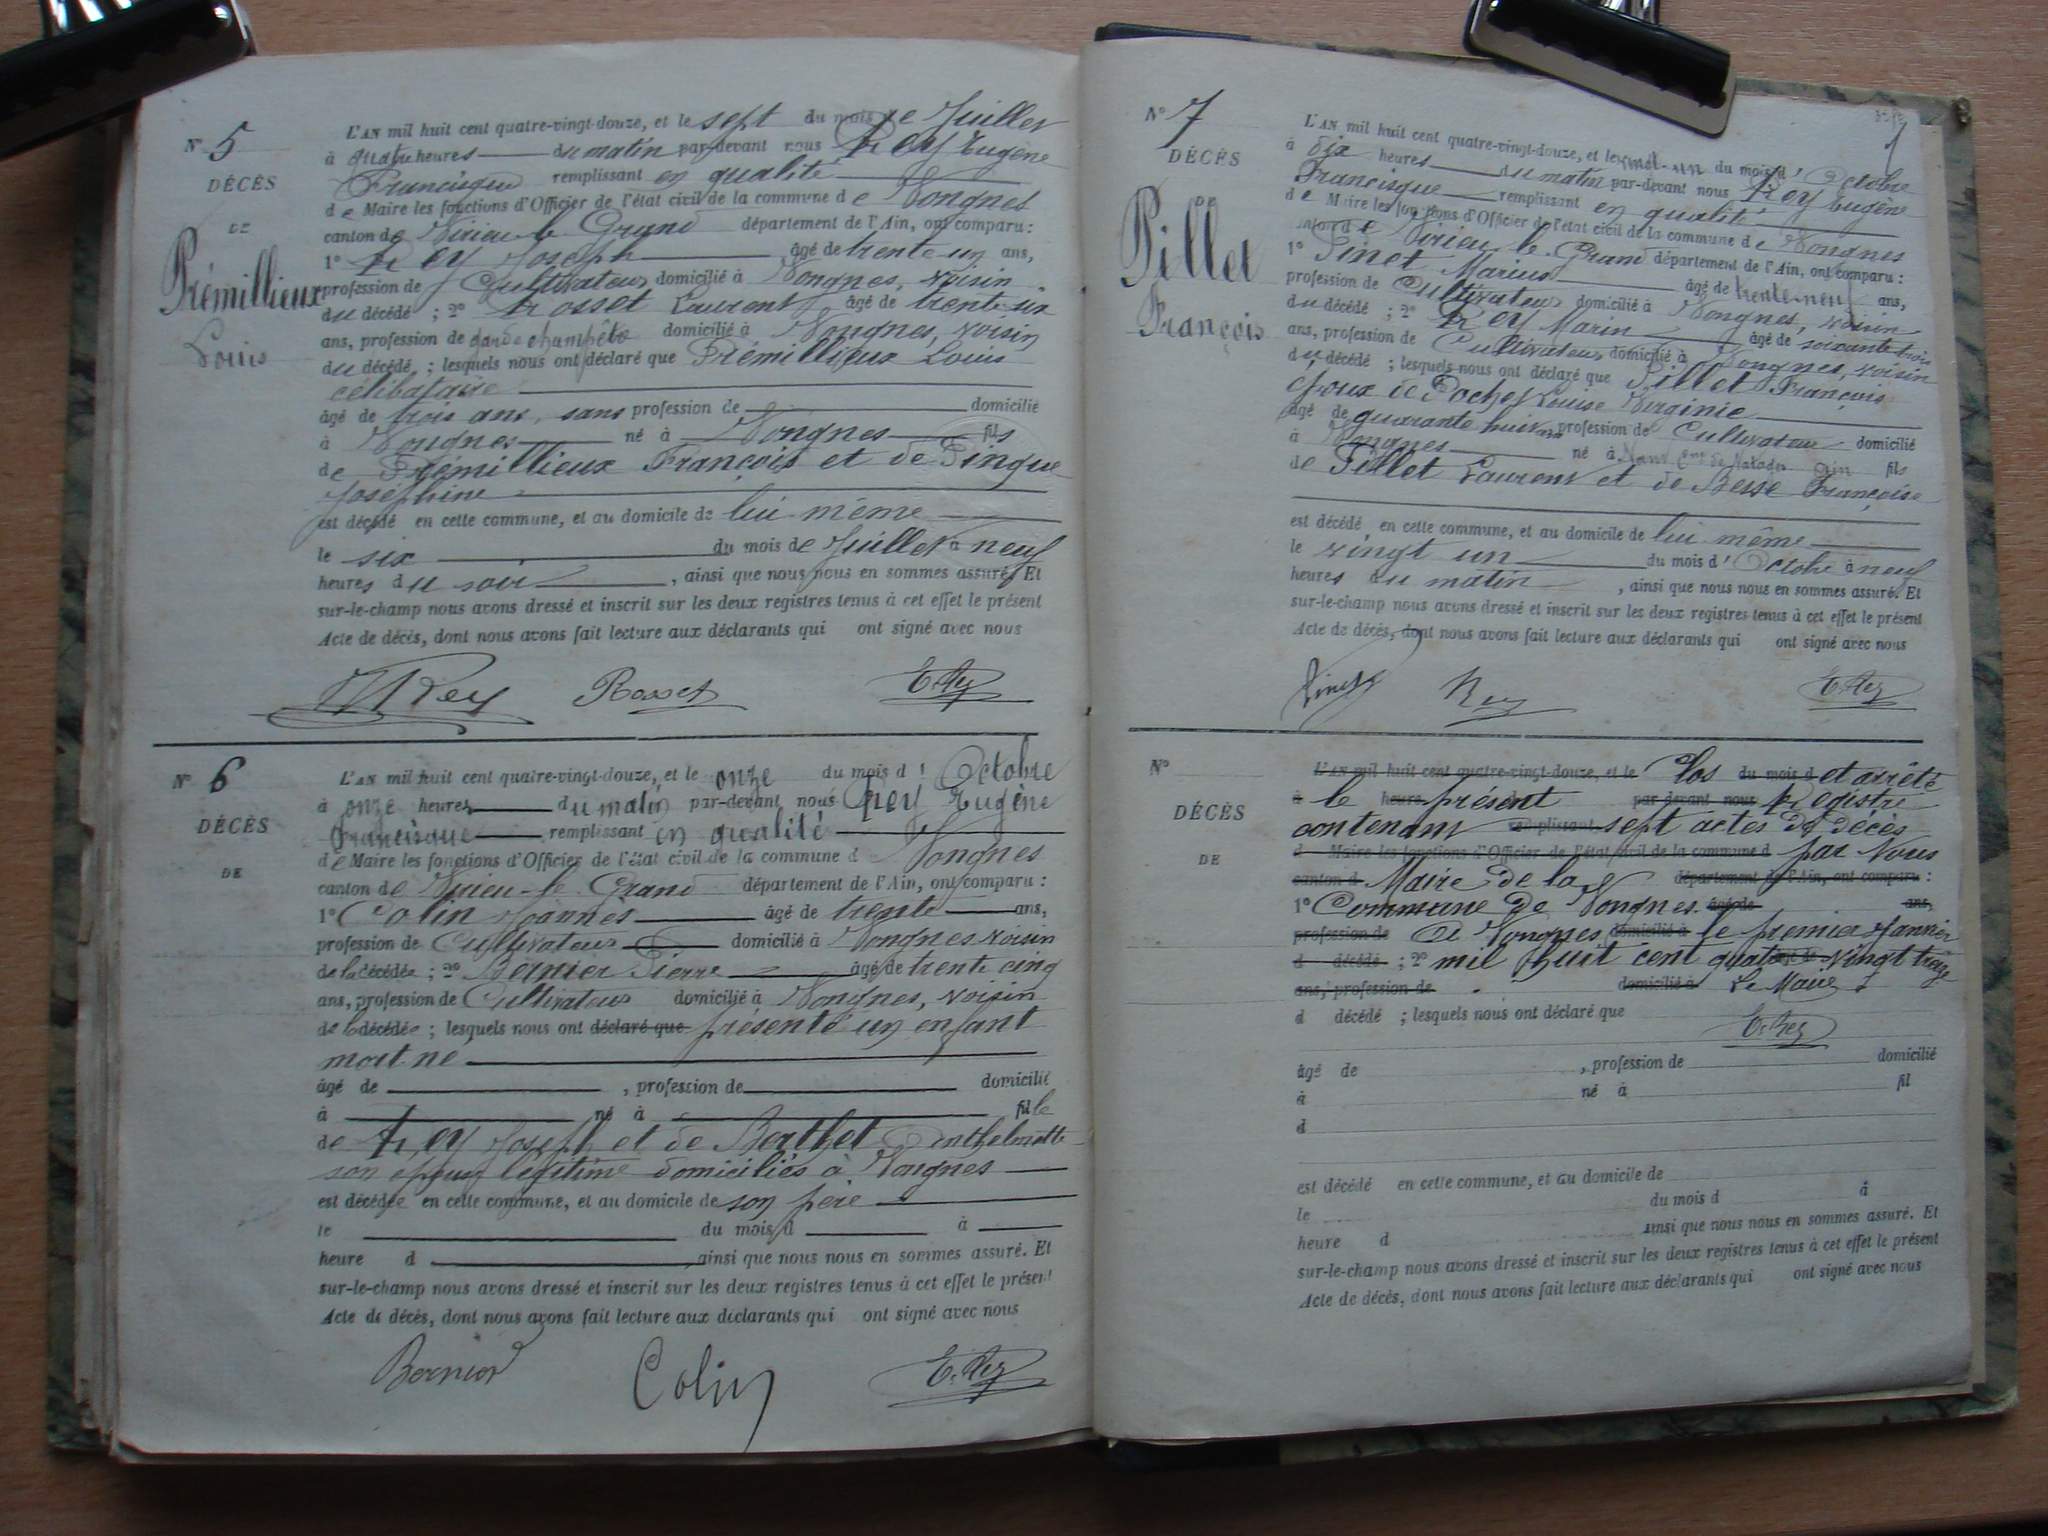 N° 5
DÉCÈS
DE
Prémillieux
Louis
L'AN mil huit cent quatre-vingt-douze, et le sept du mois de Juillet
à quatre heures du matin par-devant nous Rey Eugène
Francisque remplissant en qualité
de Maire les fonctions d'Officier de l'état civil de la commune de Vongnes
canton de Virieu-le-Grand département de l'Ain, ont comparu :
1° Rey Joseph, âgé de trente un ans,
profession de Cultivateur domicilié à Vongnes, voisin
du décédé ; 2° Rosset Laurent âgé de trente-six
ans, profession de garde champêtre domicilié à Vongnes, voisin
du décédé ; lesquels nous ont déclaré que Prémillieux Louis
célibataire
âgé de trois ans, sans profession de domicilié
à Vongnes né à Vongnes fils
de Prémillieux François et de Pingue
Joséphine
est décédé en cette commune, et au domicile de lui même
le six du mois de Juillet à neuf
heures du soir, ainsi que nous nous en sommes assuré. Et
sur-le-champ nous avons dressé et inscrit sur les deux registres tenus à cet effet le présent
Acte de décès, dont nous avons fait lecture aux déclarants qui ont signé avec nous
Rey Rosset E. Rey
N° 6
DÉCÈS
DE
L'AN mil huit cent quatre-vingt-douze, et le onze du mois d'Octobre
à onze heures du matin par-devant nous Rey Eugène
Francisque remplissant en qualité
de Maire les fonctions d'Officier de l'état civil de la commune d Vongnes
canton de Virieu-le-Grand département de l'Ain, ont comparu :
1° Colin Joannes âgé de trente ans,
profession de Cultivateur domicilié à Vongnes voisin
de la décédée ; 2° Bernier Pierre âgé de trente cinq
ans, profession de Cultivateur domicilié à Vongnes, voisin
de la décédée ; lesquels nous ont déclaré que présenté un enfant
mort né
âgé de , profession de domicilié
à né à fille
de Rey Joseph et de Berthet Anthelmette
son épouse légitime domiciliés à Vongnes
est décédée en cette commune, et au domicile de son père
le du mois d à
heure d ainsi que nous nous en sommes assuré. Et
sur-le-champ nous avons dressé et inscrit sur les deux registres tenus à cet effet le présent
Acte de décès, dont nous avons fait lecture aux déclarants qui ont signé avec nous
Bernier Colin E. Rey
N° 7
DÉCÈS
DE
Pillet
François
L'AN mil huit cent quatre-vingt-douze, et le vingt-un du mois d'Octobre
à dix heures du matin par-devant nous Rey Eugène
Francisque remplissant en qualité
de Maire les fonctions d'Officier de l'état civil de la commune de Vongnes
canton de Virieu-le-Grand département de l'Ain, ont comparu :
1° Pinet Marius âgé de trente-neuf ans,
profession de Cultivateur domicilié à Vongnes, voisin
du décédé ; 2° Rey Marin âgé de soixante trois
ans, profession de Cultivateur domicilié à Vongnes, voisin
du décédé ; lesquels nous ont déclaré que Pillet François
époux de Pochet Louise Virginie
âgé de quarante huit ans profession de Cultivateur domicilié
à Vongnes né à Ain fils
de Pillet Laurent et de Besse Françoise
est décédé en cette commune, et au domicile de lui même
le vingt un du mois d'Octobre à neuf
heures du matin, ainsi que nous nous en sommes assuré. Et
sur-le-champ nous avons dressé et inscrit sur les deux registres tenus à cet effet le présent
Acte de décès, dont nous avons fait lecture aux déclarants qui ont signé avec nous
Pinet Rey E. Rey
N°
DÉCÈS
DE
L'AN mil huit cent quatre-vingt-douze, et le Clos du mois d et arrêté
à le heure présent par-devant nous Registre
contenant remplissant sept actes de décès
d Maire les fonctions d'Officier de l'état civil de la commune d par Nous
canton d Maire de la département de l'Ain, ont comparu :
1° Commune de Vongnes. âgé de ans,
profession de A Vongnes domicilié à le premier Janvier
d décédé ; 2° mil huit cent quatre âgé de vingt treize
ans, profession de domicilié à Le Maire
d décédé ; lesquels nous ont déclaré que
E. Rey
âgé de , profession de domicilié
à né à fil
d
est décédé en cette commune, et au domicile de
le du mois d à
heure d ainsi que nous nous en sommes assuré. Et
sur-le-champ nous avons dressé et inscrit sur les deux registres tenus à cet effet le présent
Acte de décès, dont nous avons fait lecture aux déclarants qui ont signé avec nous